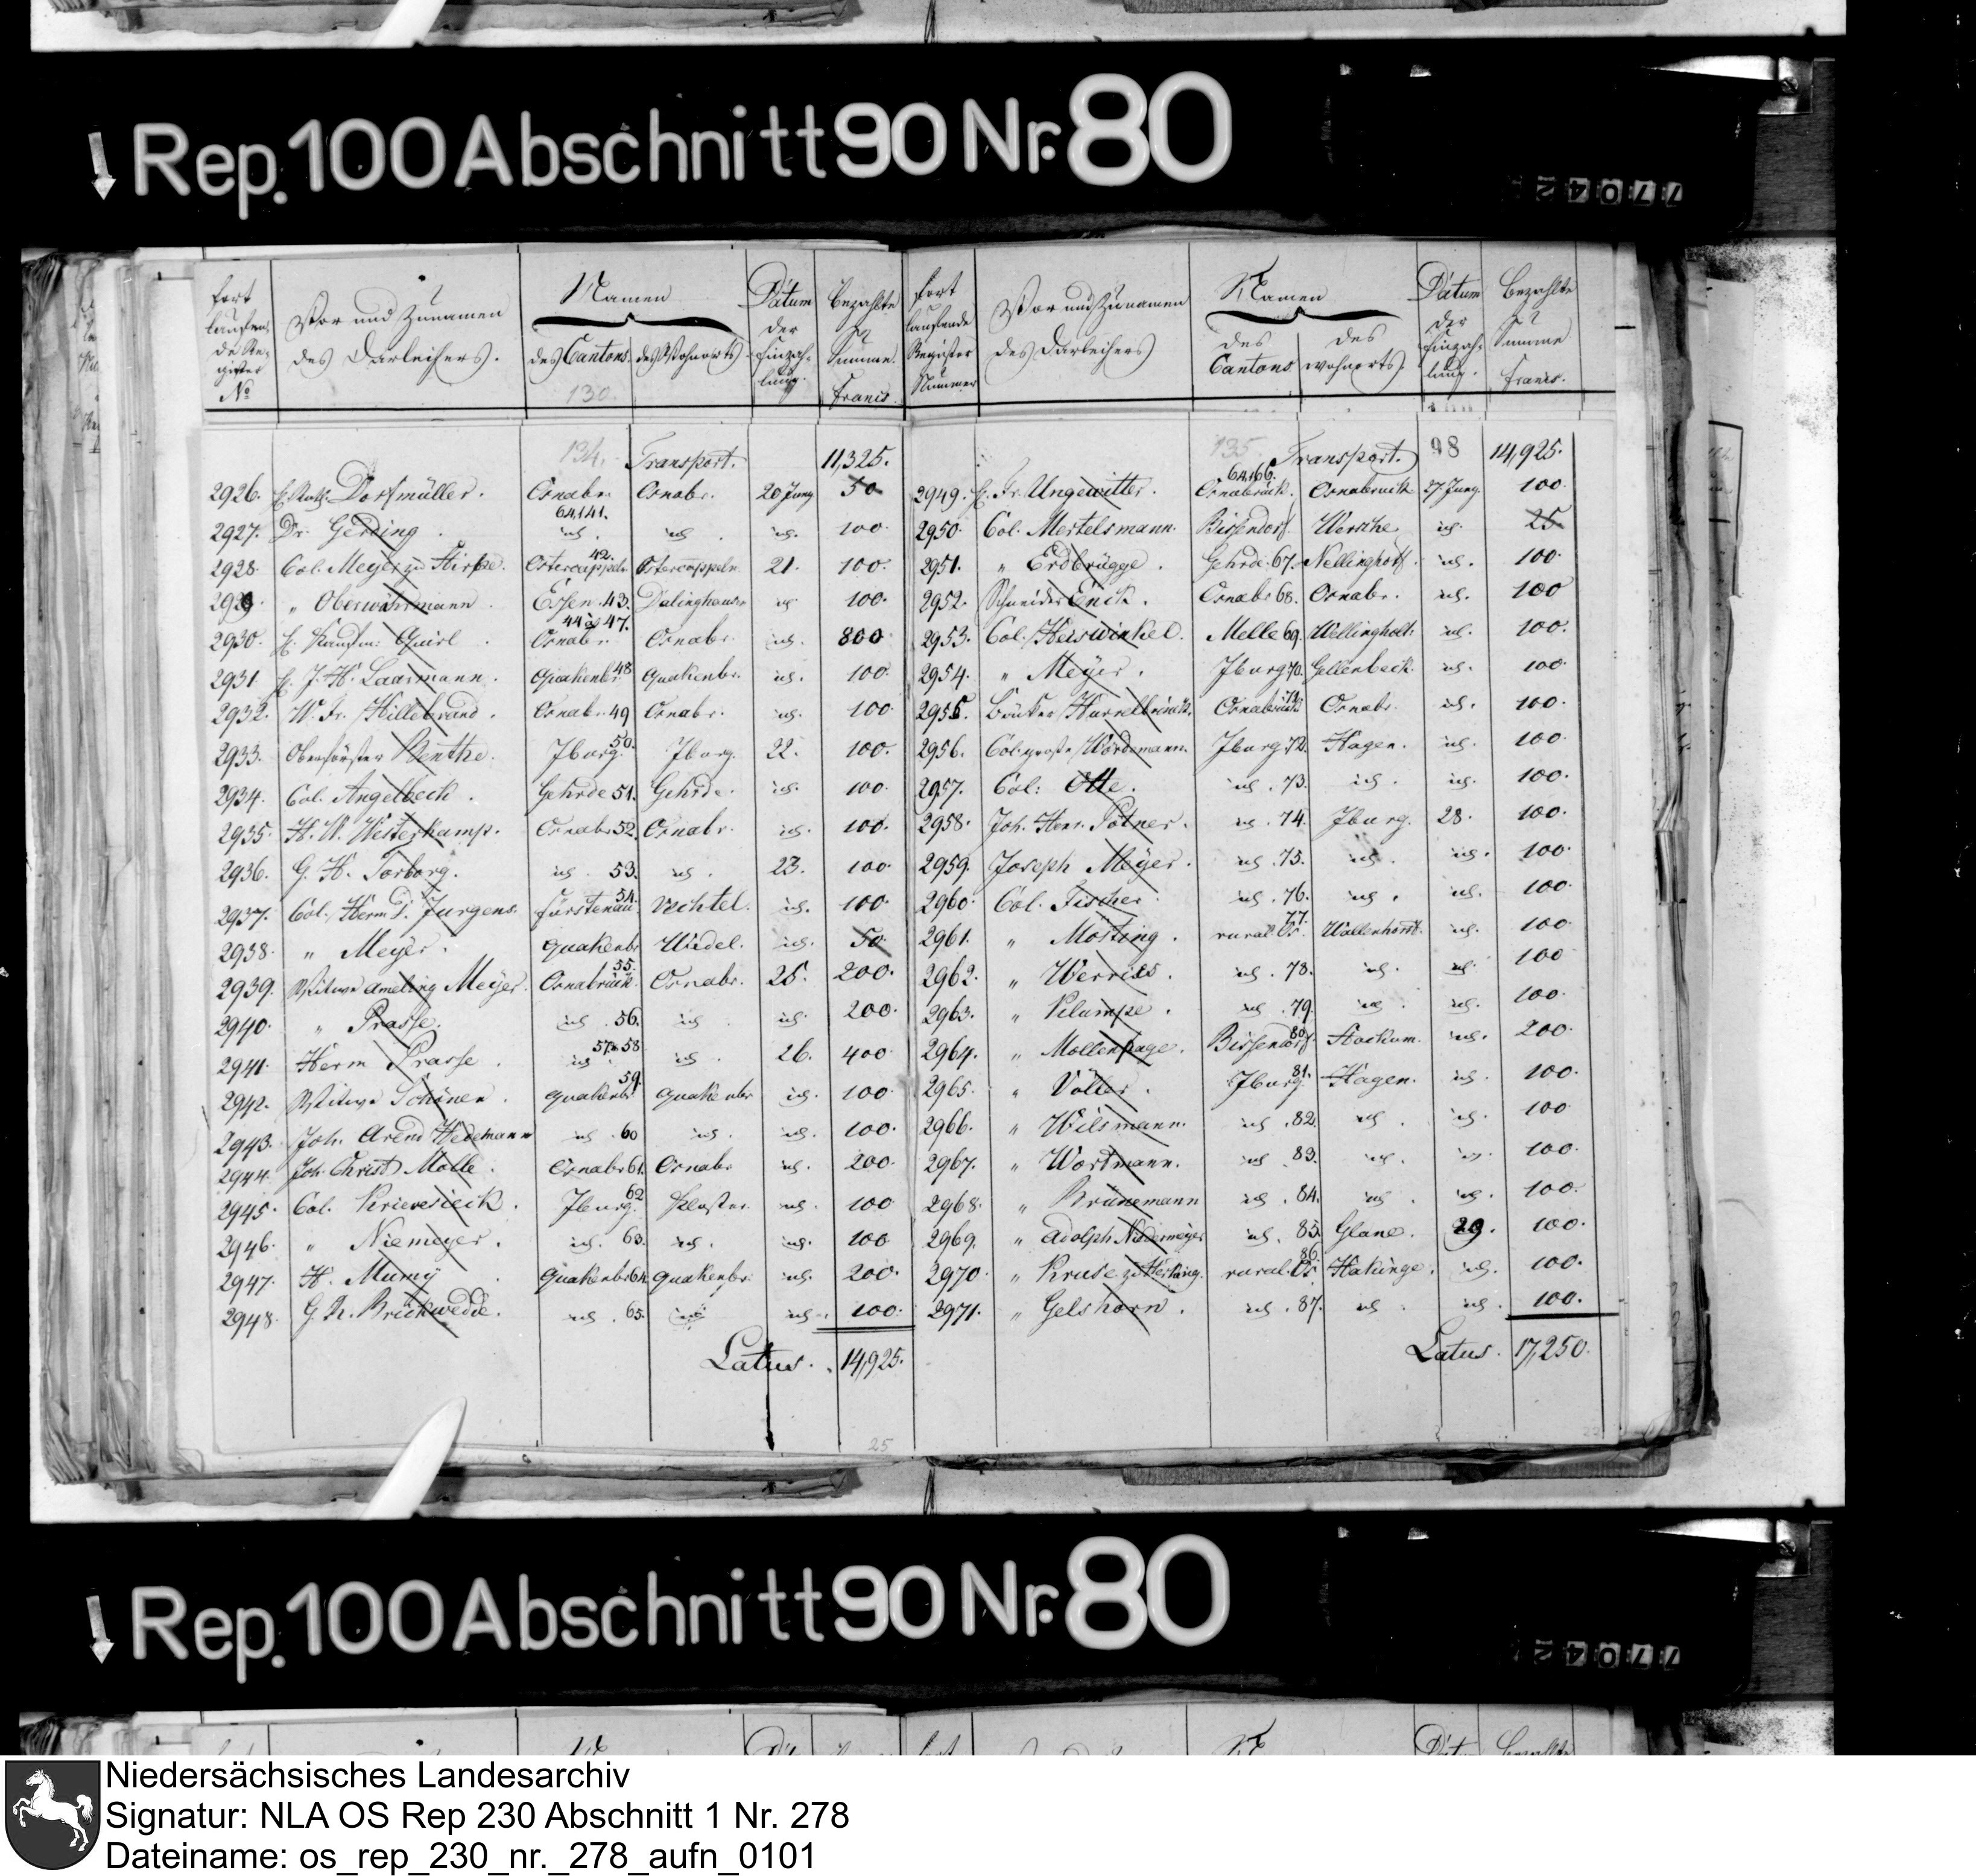 Rep. 100 Abschnitt 90 Nr. 80
77042
fort laufende Register No
Vor und Zunamen des Darleihers.
Namen
des Cantons. des Wohnorts
Datum der Einzahlung.
Bezahlte Summe. francs.
130.
134. Transport. 11,325.
2926. H. Rath Dorfmüller. Osnabr. Osnabr. 20 Juny 50
2927. Dr. Gerding. 64141. id. id. id. 100
2928. Col. Meyer zu Hirpe. Ostercappeln 42. Ostercappeln 21. 100.
2929. " Oberwährmann. Essen. 43. Dalinghausen id. 100.
2930. H. Kaufm. Quirl. Osnabr. 44 à 47. Osnabr. id. 800
2931. H. J. H. Laarmann. Quakenbr. 48 Quakenbr. id. 100.
2932. W. Fr. Hillebrand. Osnabr. 49 Osnabr. id. 100
2933. Oberförster Benthe. Jburg. 50. Jburg. 22. 100.
2934. Col. Angelbeck. Gehrde 51. Gehrde. id. 100.
2935. H. W. Westerkamp. Osnabr. 52. Osnabr. id. 100.
2936. G. H. Torborg. id. 53. id. 23. 100
2937. Col. Herm D. Jurgens. Fürstenau 54. Vechtel. id. 100.
2938. " Meyer. Quakenbr. Wedel. id. 50.
2939. Witwe Ameling Meyer. Osnabrück. 55. Osnabr. 25. 200.
2940. " Prasse. id. 56. id. id. 200.
2941. Herm Prasse. id. 57 à 58 id. 26. 400
2942. Witwe Schönen. Quakenbr. 59. Quakenbr. id. 100.
2943. Joh. Arend Hedemann id. 60 id. id. 100.
2944. Joh. Christ. Molle. Osnabr. 61. Osnabr. id. 200.
2945. Col. Krievesieck. Jburg. 62 Kloster id. 100
2946. " Niemeyer. id. 63. id. id. 100
2947. H. Mumy Quakenbr. 64. Quakenbr. id. 200.
2948. G. R. Brickwedde. id. 65. id. id. 100.
Latus. 14,925.
25
fort laufende Register Nummer
Vor und Zunamen des Darleihers
Namen
des Cantons des Wohnorts.
Datum der Einzahlung.
Bezahlte Summe francs.
135. Transport. 98 14,925.
2949. H. Fr. Ungewitter. Osnabrück. 64166. Osnabrück 27 Juny. 100.
2950. Col. Mertelsmann. Bissendorf Wersche. id. 25.
2951. " Erdbrügge. Gehrde. 67. Nellinghoff. id. 100
2952. Schneider Enck. Osnabr. 68. Osnabr. id. 100
2953. Col. Herswinkel. Melle 69. Wellingholt. id. 100.
2954. " Meyer. Jburg 70. Gellenbeck. id. 100
2955. Bäcker Hurrelbrinck. Osnabrück 71. Osnabr. id. 100.
2956. Col. grosse Wördemann. Jburg 72. Hagen. id. 100
2957. Col. Otte. id. 73. id. id. 100.
2958. Joh. Henr. Potner. id. 74. Jburg. 28. 100.
2959. Joseph Meyer. id. 75. id. id. 100
2960. Col. Fischer. id. 76. id. id. 100.
2961. " Mösting. rural Os. 77. Wallenhorst. id. 100
2962. " Werries. id. 78. id. id. 100
2963. " Klumpe. id. 79. id. id. 100.
2964. " Mollenhage. Bissendorf 80. Hockum. id. 200.
2965. " Völler. Jburg. 81. Hagen. id. 100.
2966. " Wilsmann. id. 82. id. id. 100
2967. " Wortmann. id. 83. id. id. 100.
2968. " Brünemann id. 84. id. id. 100.
2969. " Adolph Niedermeyer id. 85. Glane. 29. 100.
2970. " Kruse zu Herking. rural. Os. 86. Hakinge. id. 100.
2971. " Gelshorn. id. 87. id. id. 100.
Latus. 17,250.
Rep. 100 Abschnitt 90 Nr. 80
77042
Niedersächsisches Landesarchiv
Signatur: NLA OS Rep 230 Abschnitt 1 Nr. 278
Dateiname: os_rep_230_nr._278_aufn_0101